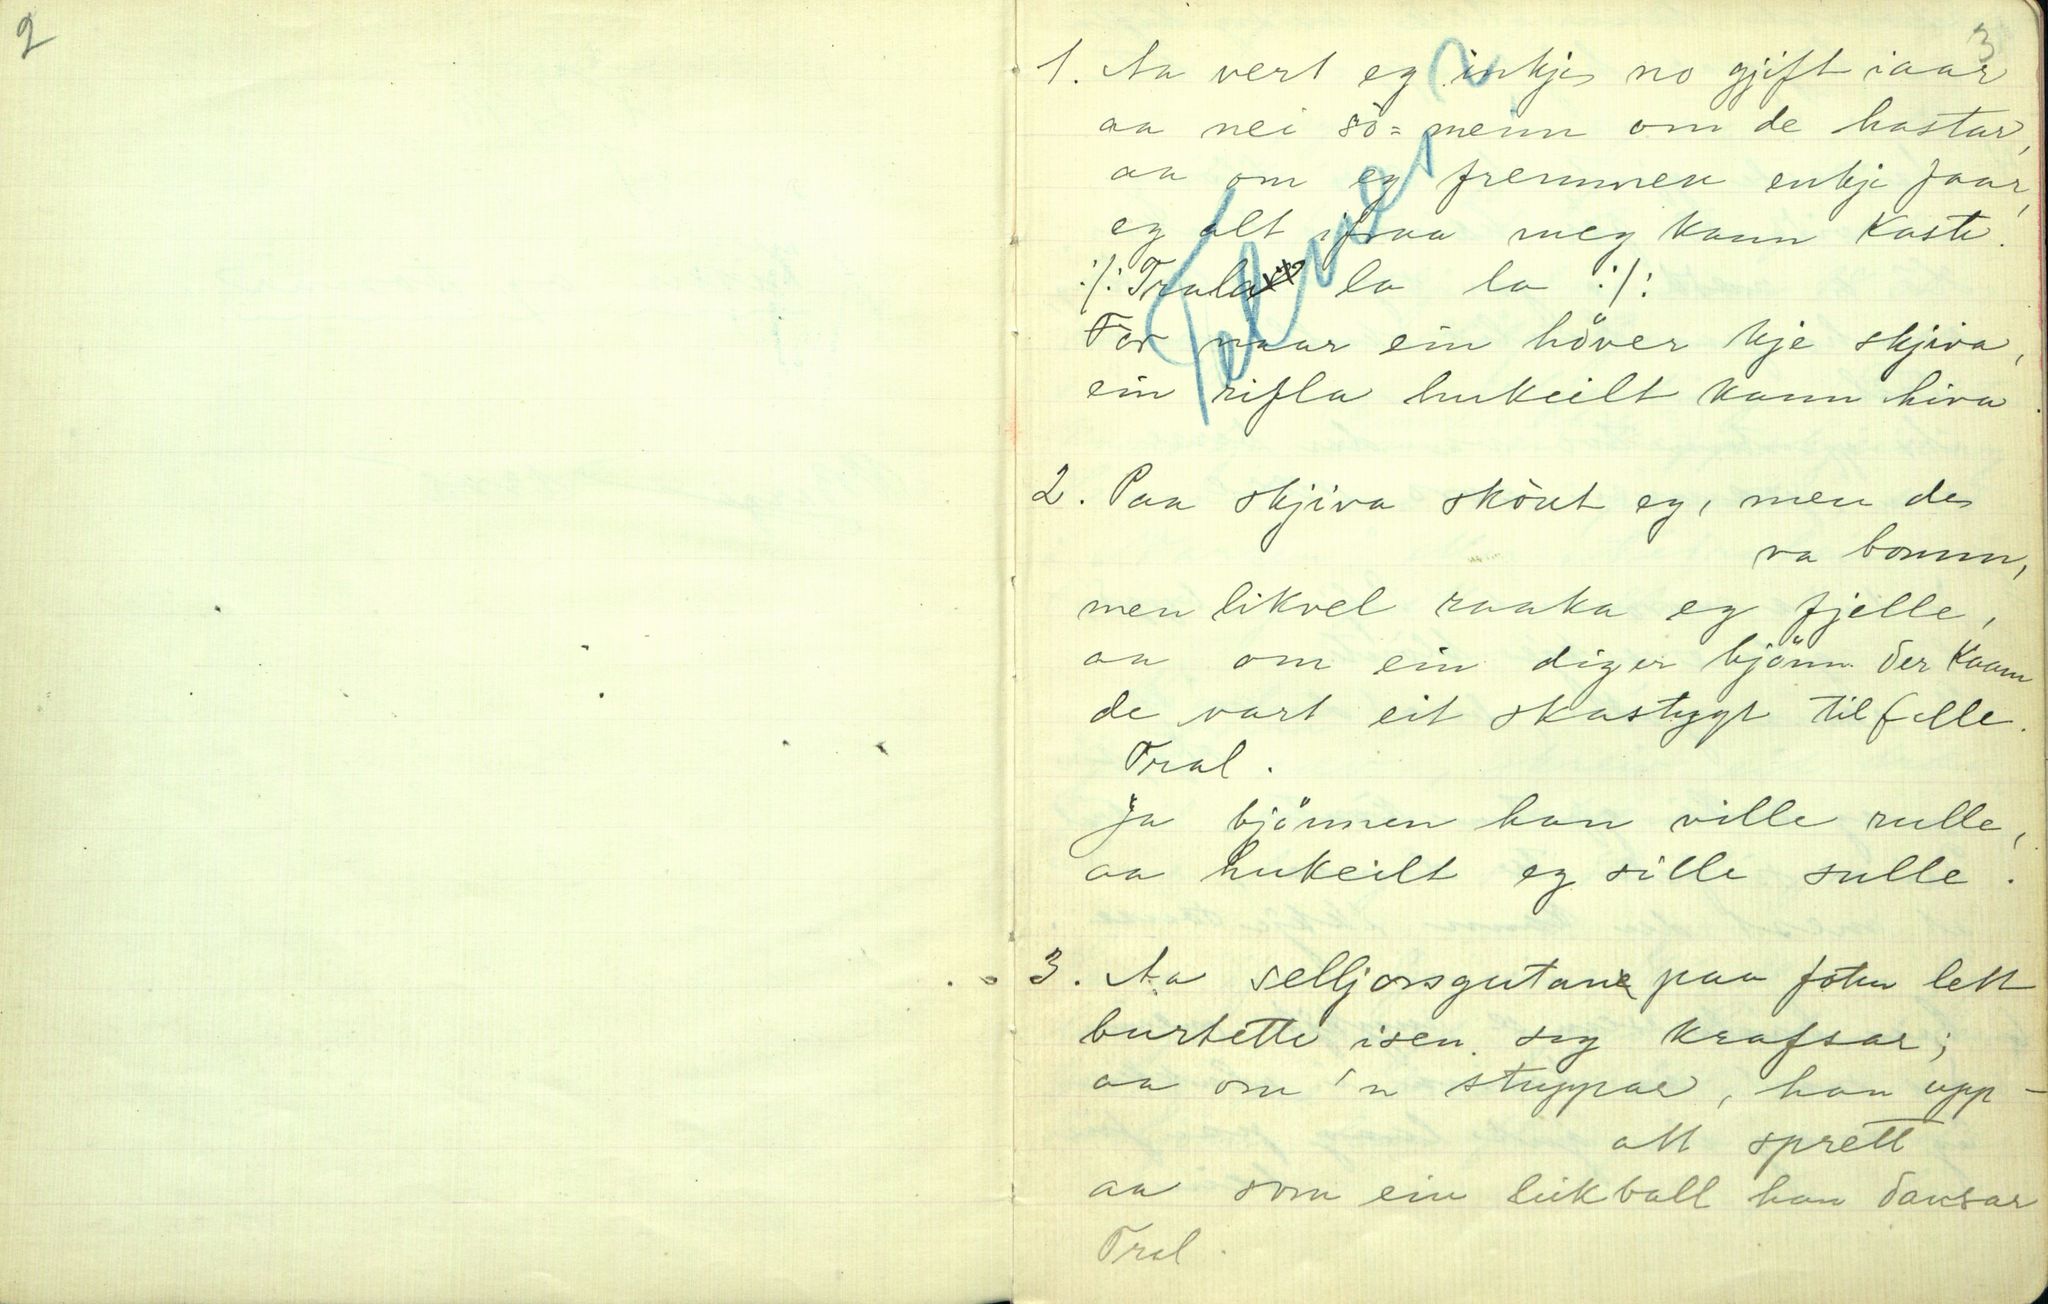 2
3
1. Aa vert eg inkje no gjift iaar
aa nei sö= meinn om de hastar,
aa om eg fremmen enkje faar,
eg alt ifraa meg kann kaste.
:/: Trala la la :/:
For naar ein höver kje skjiva,
ein rifla hukeilt kann hiva.
2. Paa skjiva sköut eg, men de
va bomm,
men likvel raaka eg fjelle,
aa om ein diger bjönn der kaam
de vart eit skastygt tilfelle.
Tral.
Ja bjönnen han ville rulle,
aa hukeilt eg sille sulle.
3. Aa selljorsgutane paa foten lett
burtette isen seg krafsar;
aa om 'n stuppar, han upp-
att sprett
aa som ein leikball han dansar
Tral.